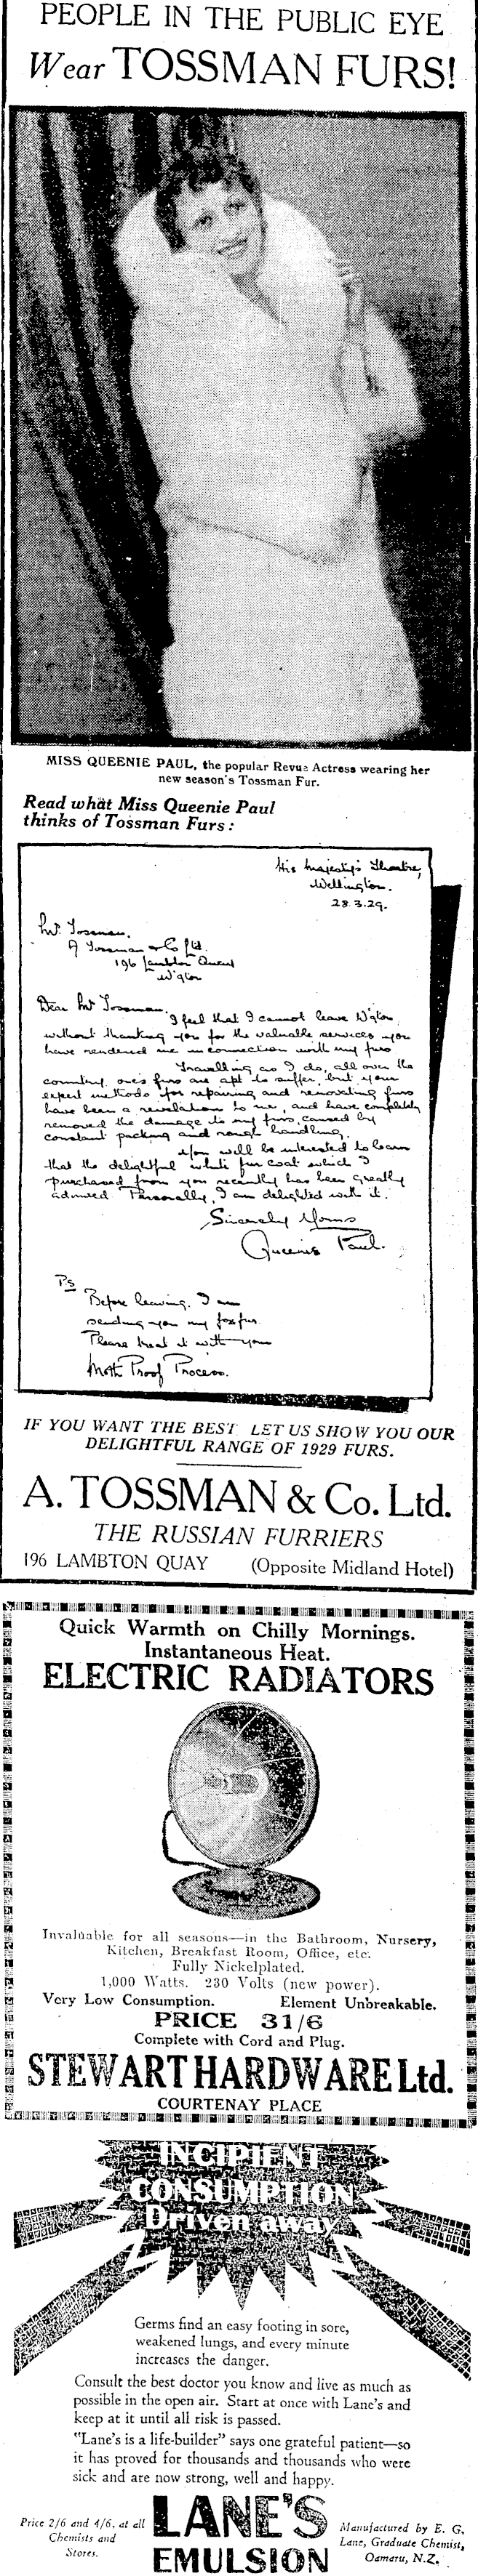 PEOPLE IN THE PUBLIC EYE
Wear TOSSMAN FURS!
MISS QUEENIE PAUL, the popular Revue Actress wearing her
new season's Tossman Fur.
Read what Miss Queenie Paul
thinks of Tossman Furs:
His Majesty's Theatre,
Wellington.
28.3.29.
Mr. Tossman.
A Tossman & Co Ltd.
196 Lambton Quay
W'gton
Dear Mr Tossman,
I feel that I cannot leave W'gton,
without thanking you for the valuable services you
have rendered me in connection with my furs
Travelling as I do, all over the
country, one's furs are apt to suffer, but your
expert methods for repairing and renovating furs
have been a revelation to me, and have completely
removed the damage to my furs caused by
constant packing and rough handling.
You will be interested to learn
that the delightful white fur coat which I
purchased from you recently has been greatly
admired Personally, I am delighted with it.
Sincerely Yours
Queenie Paul.
P.S
Before leaving. I am
sending you my fox fur.
Please treat it with your
Moth Proof Process.
IF YOU WANT THE BEST LET US SHOW YOU OUR
DELIGHTFUL RANGE OF 1929 FURS.
A. TOSSMAN & Co. Ltd.
THE RUSSIAN FURRIERS
196 LAMBTON QUAY (Opposite Midland Hotel)
Quick Warmth on Chilly Mornings.
Instantaneous Heat.
ELECTRIC RADIATORS
Invaluable for all seasons—in the Bathroom, Nursery,
Kitchen, Breakfast Room, Office, etc.
Fully Nickelplated.
1,000 Watts. 230 Volts (new power).
Very Low Consumption. Element Unbreakable.
PRICE 31/6
Complete with Cord and Plug.
STEWART HARDWARE Ltd.
COURTENAY PLACE
INCIPIENT
CONSUMPTION
Driven away
Germs find an easy footing in sore,
weakened lungs, and every minute
increases the danger.
Consult the best doctor you know and live as much as
possible in the open air. Start at once with Lane's and
keep at it until all risk is passed.
"Lane's is a life-builder" says one grateful patient—so
it has proved for thousands and thousands who were
sick and are now strong, well and happy.
Price 2/6 and 4/6, at all
Chemists and
Stores.
LANE'S
EMULSION
Manufactured by E. G.
Lane, Graduate Chemist,
Oamaru, N.Z.